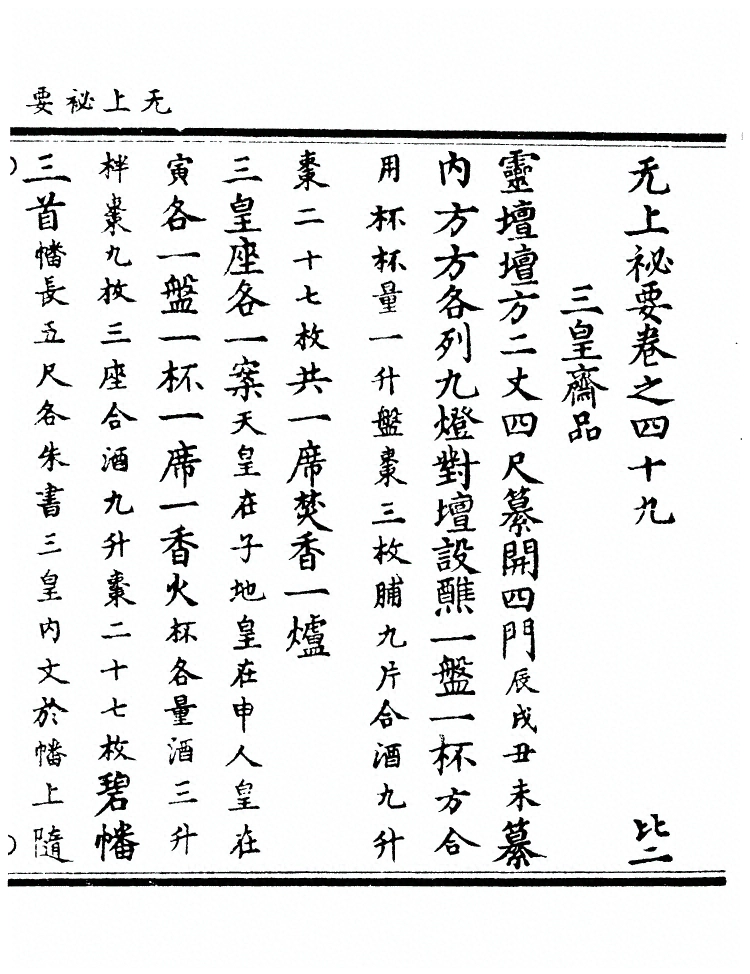 无上祕要
无上祕要卷之四十九 比二
三皇齋品
靈壇壇方二丈四尺纂開四門辰戌丑未纂
内方方各列九燈對壇設醮一盤一杯方合
用杯杯量一升盤棗三枚脯九片合酒九升
棗二十七枚共一席焚香一爐
三皇座各一案天皇在子地皇在申人皇在
寅各一盤一杯一席一香火杯各量酒三升
柈棗九枚三座合酒九升棗二十七枚碧幡
三首幡長五尺各朱書三皇内文於幡上隨